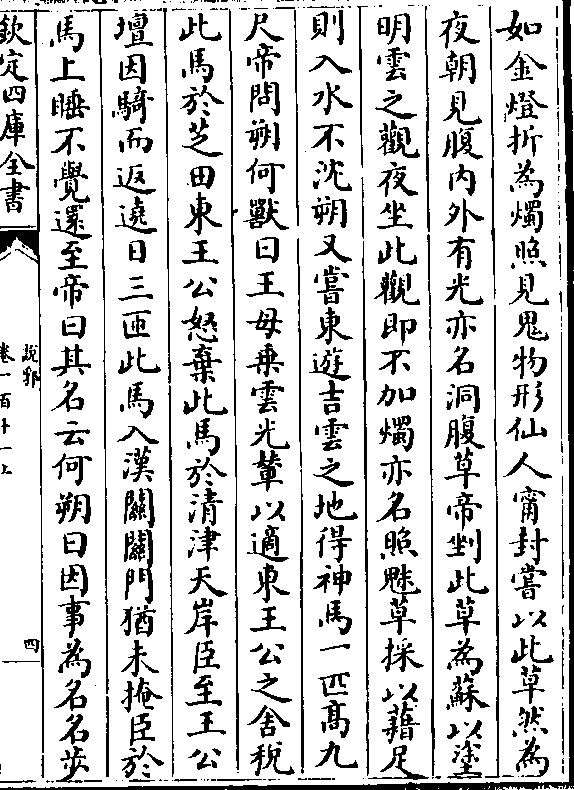 如金燈折為燭照見鬼物形仙人甯封嘗以此草然為
夜朝見腹内外有光亦名洞腹草帝剉此草為蘇以塗
明雲之觀夜坐此觀即不加燭亦名照魅草採以藉足
則入水不沈朔又嘗東遊吉雲之地得神馬一匹髙九
尺帝問朔何獸曰王母乘雲光輦以適東王公之舍稅
此馬於芝田東王公怒棄此馬於清津天岸臣至王公
壇因騎而返遶日三匝此馬入漢關關門猶未掩臣於
馬上睡不覺還至帝曰其名云何朔曰因事為名名步
欽定四庫全書
說郛
卷一百十一上
四